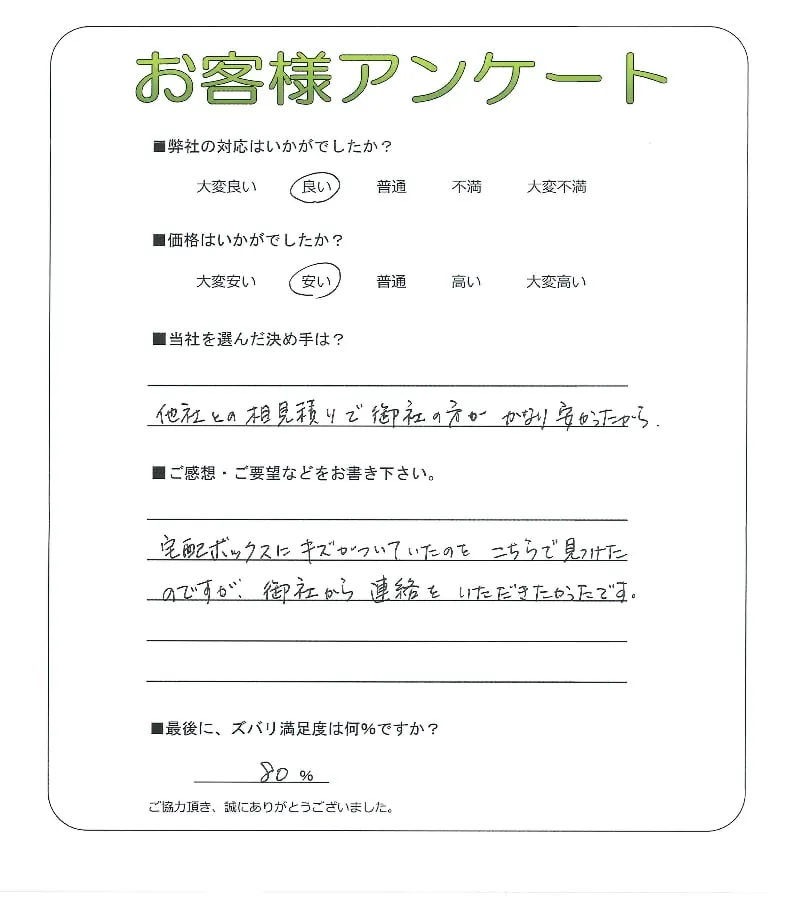 お客様アンケート
■弊社の対応はいかがでしたか？
大変良い 良い 普通 不満 大変不満
■価格はいかがでしたか？
大変安い 安い 普通 高い 大変高い
■当社を選んだ決め手は？
他社との相見積りで御社の方が かなり安かったから.
■ご感想・ご要望などをお書き下さい。
宅配ボックスにキズがついていたのを こちらで見つけた
のですが、御社から 連絡を いただきたかったです。
■最後に、ズバリ満足度は何%ですか？
80 %
ご協力頂き、誠にありがとうございました。